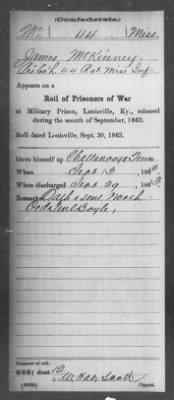 (Confederate.)
Mc 44 Miss.
James McKinney
44 Regt Miss Inf.
Appears on a
Roll of Prisoners of War
at Military Prison, Louisville, Ky., released
during the month of September, 1863.
Roll dated Louisville, Sept. 30, 1863.
Gave himself up Chattanooga Tenn
When Sept 13, 186
When discharged Sept 29, 1863.
Remarks: Oath & sent North
Ord. Genl Boyle,
Number of roll:
sheet
Copyist.